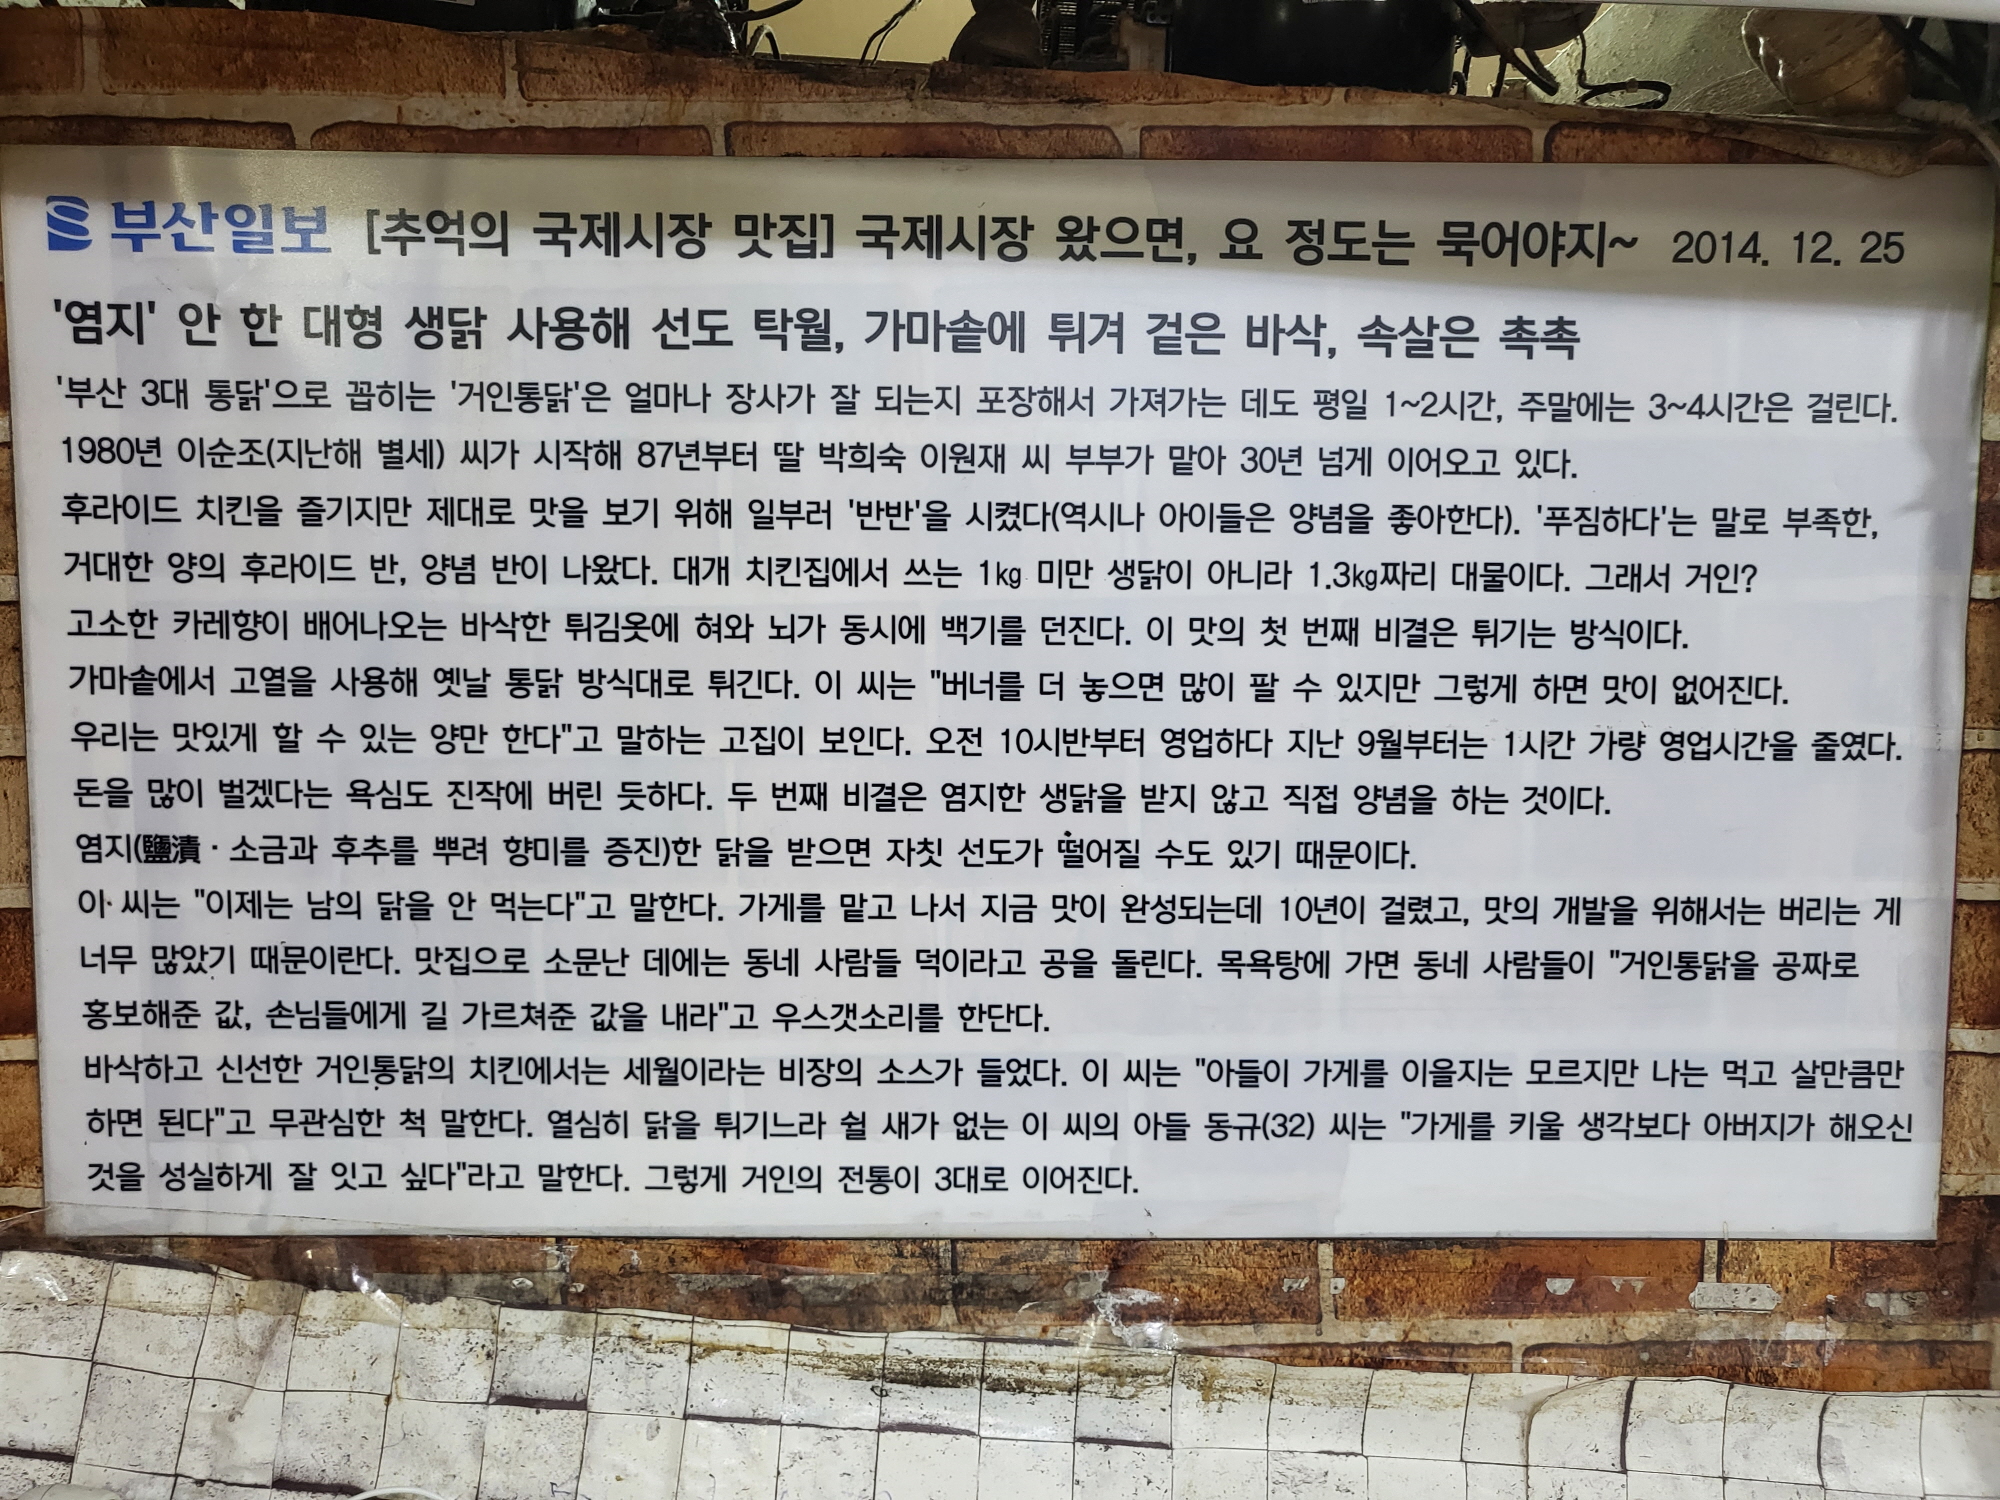 부산일보 [추억의 국제시장 맛집] 국제시장 왔으면, 요 정도는 묵어야지~ 2014. 12. 25
'염지' 안 한 대형 생닭 사용해 선도 탁월, 가마솥에 튀겨 겉은 바삭, 속살은 촉촉
'부산 3대 통닭'으로 꼽히는 '거인통닭'은 얼마나 장사가 잘 되는지 포장해서 가져가는 데도 평일 1~2시간, 주말에는 3~4시간은 걸린다.
1980년 이순조(지난해 별세) 씨가 시작해 87년부터 딸 박희숙 이원재 씨 부부가 맡아 30년 넘게 이어오고 있다.
후라이드 치킨을 즐기지만 제대로 맛을 보기 위해 일부러 '반반'을 시켰다(역시나 아이들은 양념을 좋아한다). '푸짐하다'는 말로 부족한,
거대한 양의 후라이드 반, 양념 반이 나왔다. 대개 치킨집에서 쓰는 1㎏ 미만 생닭이 아니라 1.3㎏짜리 대물이다. 그래서 거인?
고소한 카레향이 배어나오는 바삭한 튀김옷에 혀와 뇌가 동시에 백기를 던진다. 이 맛의 첫 번째 비결은 튀기는 방식이다.
가마솥에서 고열을 사용해 옛날 통닭 방식대로 튀긴다. 이 씨는 "버너를 더 놓으면 많이 팔 수 있지만 그렇게 하면 맛이 없어진다.
우리는 맛있게 할 수 있는 양만 한다"고 말하는 고집이 보인다. 오전 10시반부터 영업하다 지난 9월부터는 1시간 가량 영업시간을 줄였다.
돈을 많이 벌겠다는 욕심도 진작에 버린 듯하다. 두 번째 비결은 염지한 생닭을 받지 않고 직접 양념을 하는 것이다.
염지(鹽漬 · 소금과 후추를 뿌려 향미를 증진)한 닭을 받으면 자칫 선도가 떨어질 수도 있기 때문이다.
이 씨는 "이제는 남의 닭을 안 먹는다"고 말한다. 가게를 맡고 나서 지금 맛이 완성되는데 10년이 걸렸고, 맛의 개발을 위해서는 버리는 게
너무 많았기 때문이란다. 맛집으로 소문난 데에는 동네 사람들 덕이라고 공을 돌린다. 목욕탕에 가면 동네 사람들이 "거인통닭을 공짜로
홍보해준 값, 손님들에게 길 가르쳐준 값을 내라"고 우스갯소리를 한단다.
바삭하고 신선한 거인통닭의 치킨에서는 세월이라는 비장의 소스가 들었다. 이 씨는 "아들이 가게를 이을지는 모르지만 나는 먹고 살만큼만
하면 된다"고 무관심한 척 말한다. 열심히 닭을 튀기느라 쉴 새가 없는 이 씨의 아들 동규(32) 씨는 "가게를 키울 생각보다 아버지가 해오신
것을 성실하게 잘 잇고 싶다"라고 말한다. 그렇게 거인의 전통이 3대로 이어진다.